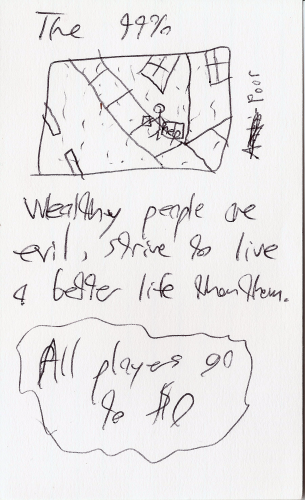 The 99%
help
Poor
Wealthy people are
evil, strive to live
a better life than them.
All players go
to $0